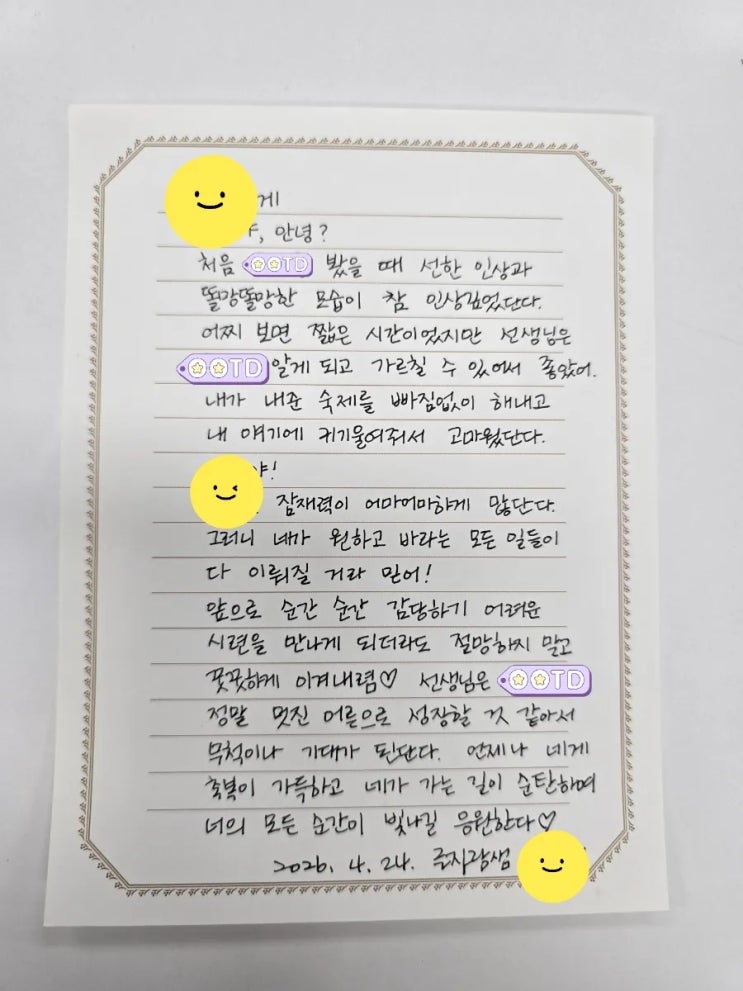 게
야, 안녕?
처음 OOTD 봤을 때 선한 인상과
똘망똘망한 모습이 참 인상깊었단다.
어찌 보면 짧은 시간이었지만 선생님은
OOTD 알게 되고 가르칠 수 있어서 좋았어.
내가 내준 숙제를 빠짐없이 해내고
내 얘기에 귀기울여줘서 고마웠단다.
야!
잠재력이 어마어마하게 많단다.
그러니 네가 원하고 바라는 모든 일들이
다 이뤄질 거라 믿어!
앞으로 순간 순간 감당하기 어려운
시련을 만나게 되더라도 절망하지 말고
꿋꿋하게 이겨내렴♡ 선생님은 OOTD
정말 멋진 어른으로 성장할 것 같아서
무척이나 기대가 된단다. 언제나 네게
축복이 가득하고 네가 가는 길이 순탄하며
너의 모든 순간이 빛나길 응원한다♡
2026. 4. 24.